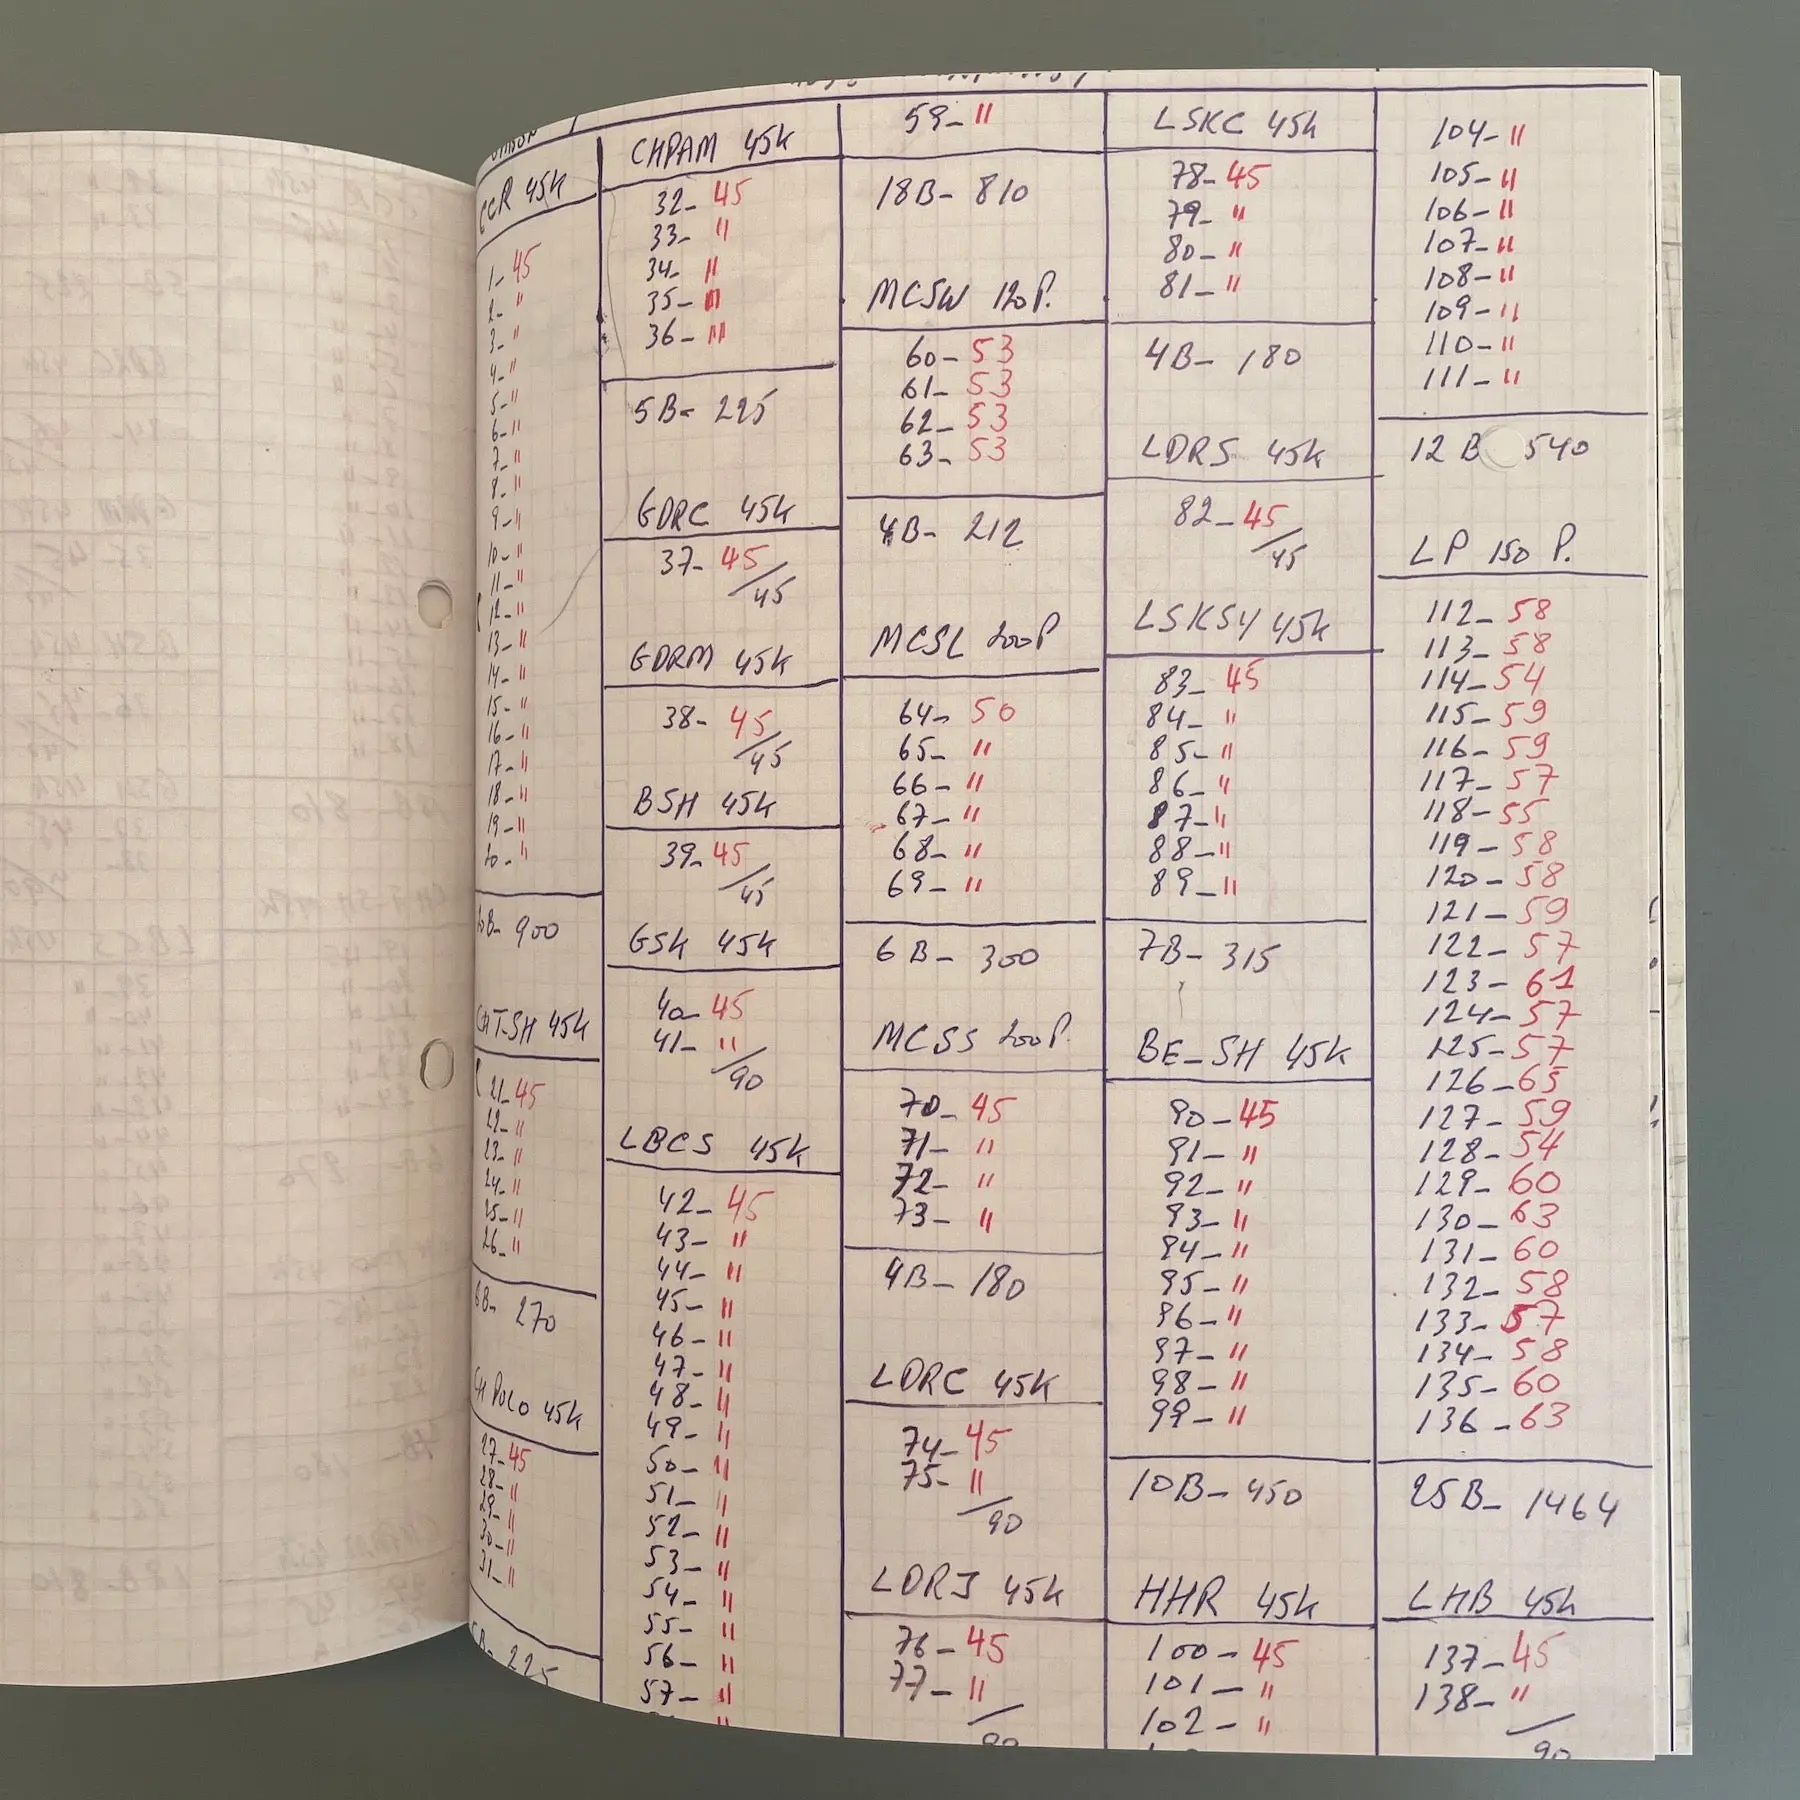 CCR 45K
1- 45
2- "
3- "
4- "
5- "
6- "
7- "
8- "
9- "
10- "
11- "
12- "
13- "
14- "
15- "
16- "
17- "
18- "
19- "
20- "
20B- 900
CHT-SH 45K
21- 45
22- "
23- "
24- "
25- "
26- "
6B- 270
CH POLO 45K
27- 45
28- "
29- "
30- "
31- "
5B- 225
CHPAM 45K
32- 45
33- "
34- "
35- "
36- "
5B- 225
GDRC 45K
37- 45
/45
GDRM 45K
38- 45
/45
BSH 45K
39- 45
/45
GSK 45K
40- 45
41- "
/90
LBCS 45K
42- 45
43- "
44- "
45- "
46- "
47- "
48- "
49- "
50- "
51- "
52- "
53- "
54- "
55- "
56- "
57- "
59- "
18B- 810
MCSW 120P.
60- 53
61- 53
62- 53
63- 53
4B- 212
MCSL 200P
64- 50
65- "
66- "
67- "
68- "
69- "
6B- 300
MCSS 200P.
70- 45
71- "
72- "
73- "
4B- 180
LDRC 45K
74- 45
75- "
/90
LDRJ 45K
76- 45
77- "
/90
LSKC 45K
78- 45
79- "
80- "
81- "
4B- 180
LDRS 45K
82- 45
/45
LSKSY 45K
83- 45
84- "
85- "
86- "
87- "
88- "
89- "
7B- 315
BE-SH 45K
90- 45
91- "
92- "
93- "
94- "
95- "
96- "
97- "
98- "
99- "
10B- 450
HHR 45K
100- 45
101- "
102- "
104- "
105- "
106- "
107- "
108- "
109- "
110- "
111- "
12B 540
LP 150 P.
112- 58
113- 58
114- 54
115- 59
116- 59
117- 57
118- 55
119- 58
120- 58
121- 59
122- 57
123- 61
124- 57
125- 57
126- 65
127- 59
128- 54
129- 60
130- 63
131- 60
132- 58
133- 57
134- 58
135- 60
136- 63
25B- 1464
LHB 45K
137- 45
138- "
/90